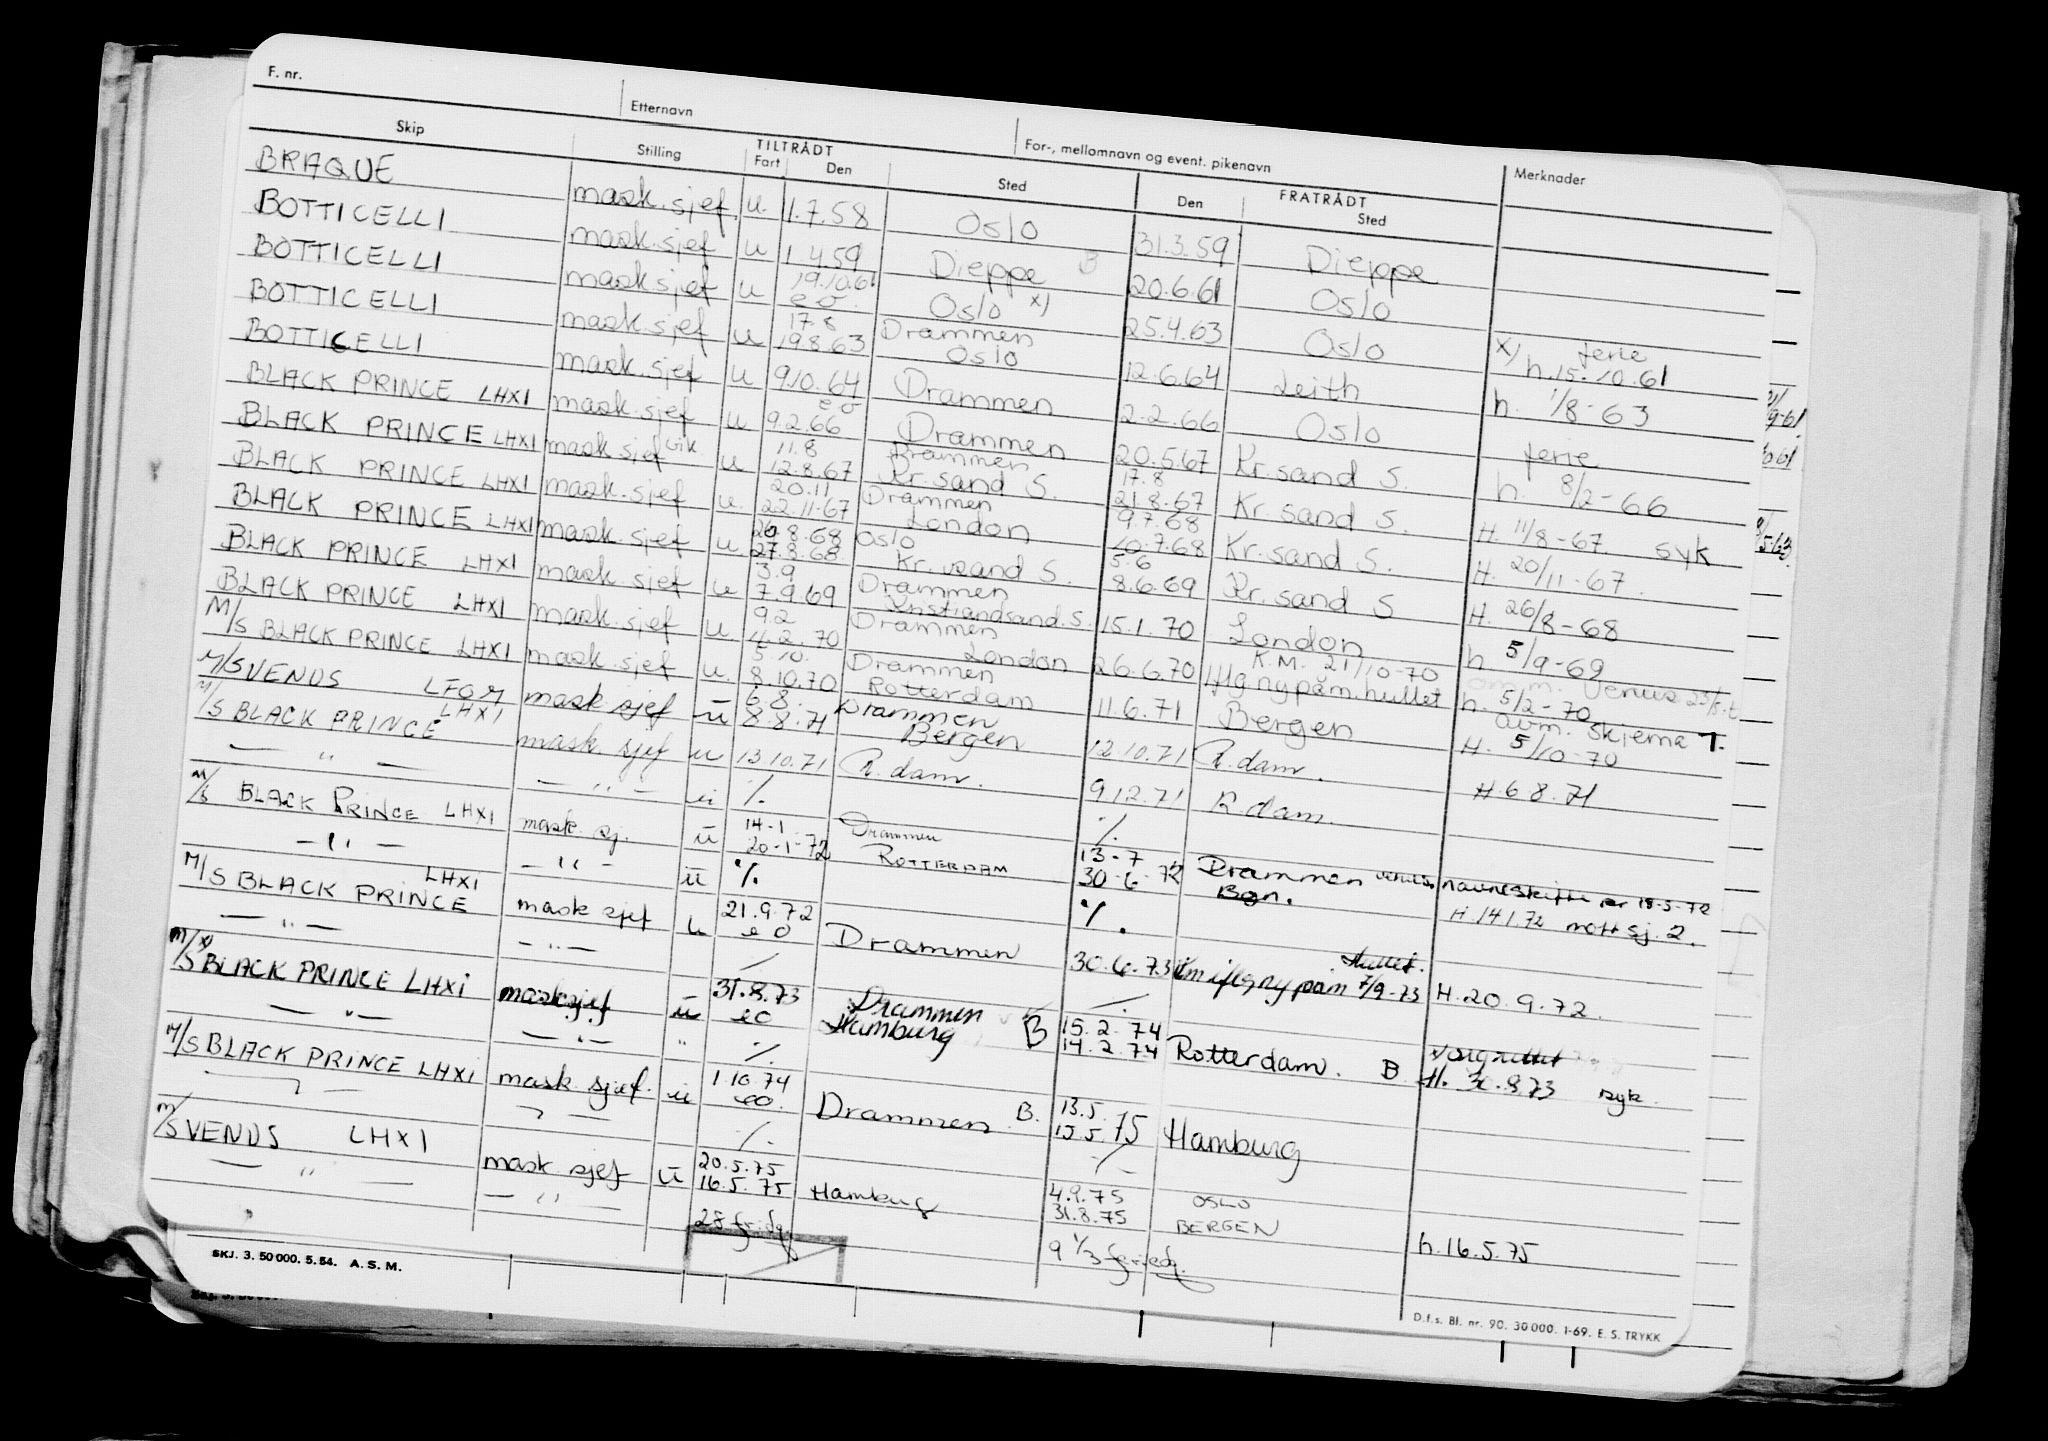 F. nr. Etternavn For-, mellomnavn og event. pikenavn
Skip Stilling TILTRÅDT Fart Den Sted FRATRÅDT Den Sted Merknader
BRAQUE mask.sjef. u. 1.7.58 Oslo 31.3.59 Dieppe
BOTTICELLI mask.sjef u 1.4.59 Dieppe B 20.6.61 Oslo
BOTTICELLI mask sjef u 19.10.61 eo. Oslo x) 25.4.63 Oslo x) ferie h. 15.10.61
BOTTICELLI mask sjef u 17.8 19.8.63 Drammen Oslo 12.6.64 Leith h. 1/8-63
BOTTICELLI mask.sjef u 9.10.64 eo Drammen 2.2.66 Oslo
BLACK PRINCE LHXI mask.sjef u 9.2.66 Drammen 20.5.67 Kr.sand S. ferie h. 8/2-66
BLACK PRINCE LHXI mask sjef vik. u 11.8 12.8.67 Drammen Kr.sand S. 17.8 21.8.67 Kr.sand S. H. 11/8-67 syk
BLACK PRINCE LHXI mask.sjef u. 20.11 22.11.67 Drammen London 9.7.68 10.7.68 Kr.sand S. H. 20/11-67.
BLACK PRINCE LHXI mask.sjef u. 26.8.68 27.8.68 Oslo Kr.sand S. 5.6 8.6.69 Kr.sand S H. 26/8-68
BLACK PRINCE LHXI mask.sjef u 3.9 7.9.69 Drammen Kristiansand.S. 15.1.70 London h 5/9-69
BLACK PRINCE LHXI mask.sjef u. 9.2 4.2.70 Drammen London 26.6.70 K.M. 21/10-70 iflg ny påm. hullet Venus h. 5/2-70
M/S BLACK PRINCE LHXI mask.sjef u. 5.10. 8.10.70 Drammen Rotterdam 11.6.71 Bergen avm. skjema T. H. 5/10-70
M/S VENUS LFGM mask sjef u 6.8. 8.8.71 Drammen Bergen 12.10.71 R.dam. H 6 8.71
M/S BLACK PRINCE LHXI mask sjef u 13.10.71 R.dam. 9.12.71 R.dam.
— " — — " — u ./. ./.
M/S BLACK PRINCE LHXI mask.sj. u 14-1 20-1-72 Drammen ROTTERDAM 13-7 30-6-72 Drammen Bgn. navneskifte 15-5-72 H.14.1.72 mott sj. 2.
— " — — " — u ./. ./.
M/S BLACK PRINCE LHXI mask sjef u 21.9.72 eo Drammen 30.6.73 iflg ny påm hullet. 7/9-73 H.20.9.72.
— " — — " —
M/S x) BLACK PRINCE LHXI mask sjef u 31.8.73 eo Drammen Hamburg B 15.2.74 14.2.74 Rotterdam. B H. 30.8.73 syk.
— " — — " — " ./.
M/S BLACK PRINCE LHXI mask.sjef. u 1.10.74 eo. Drammen B. 13.5. 15.5.75 Hamburg
— " — — " — ./. ./.
M/S VENUS LHXI mask sjef u 20.5.75 16.5.75 Hamburg 4.9.75 31.8.75 OSLO BERGEN h.16.5.75
— " — — " — 28 fridg. 9 1/3 feriedg.
SKJ. 3. 50 000. 5. 54. A. S. M.
D.f.s. Bl. nr. 90. 30 000. 1-69. E. S. TRYKK